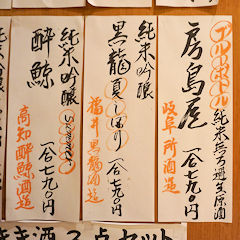 アルバトル
純米無ろ過生原酒
房島屋
岐阜 所酒造
一合七九〇円
純米吟醸
黒龍 夏しぼり
福井 黒龍酒造
一合七九〇円
純米吟醸
酔鯨 Summer
高知 酔鯨酒造
一合七九〇円
き酒3点セット